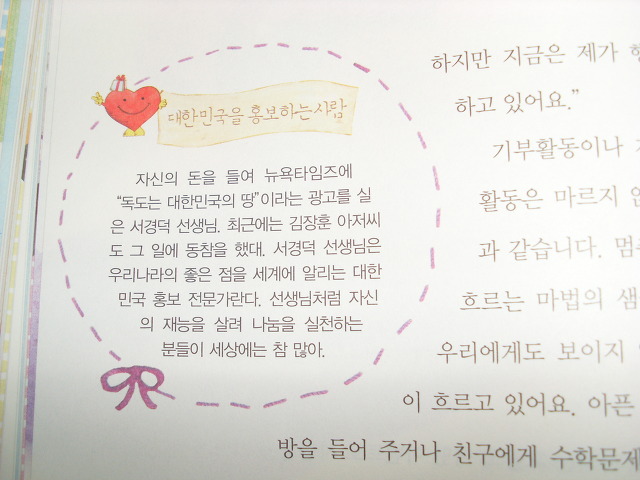 대한민국을 홍보하는 사람
자신의 돈을 들여 뉴욕타임즈에
“독도는 대한민국의 땅”이라는 광고를 실
은 서경덕 선생님. 최근에는 김장훈 아저씨
도 그 일에 동참을 했대. 서경덕 선생님은
우리나라의 좋은 점을 세계에 알리는 대한
민국 홍보 전문가란다. 선생님처럼 자신
의 재능을 살려 나눔을 실천하는
분들이 세상에는 참 많아.
하지만 지금은 제가
하고 있어요.”
기부활동이나
활동은 마르지
과 같습니다.
흐르는 마법의 샘
우리에게도 보이지
이 흐르고 있어요. 아픈
방을 들어 주거나 친구에게 수학문제